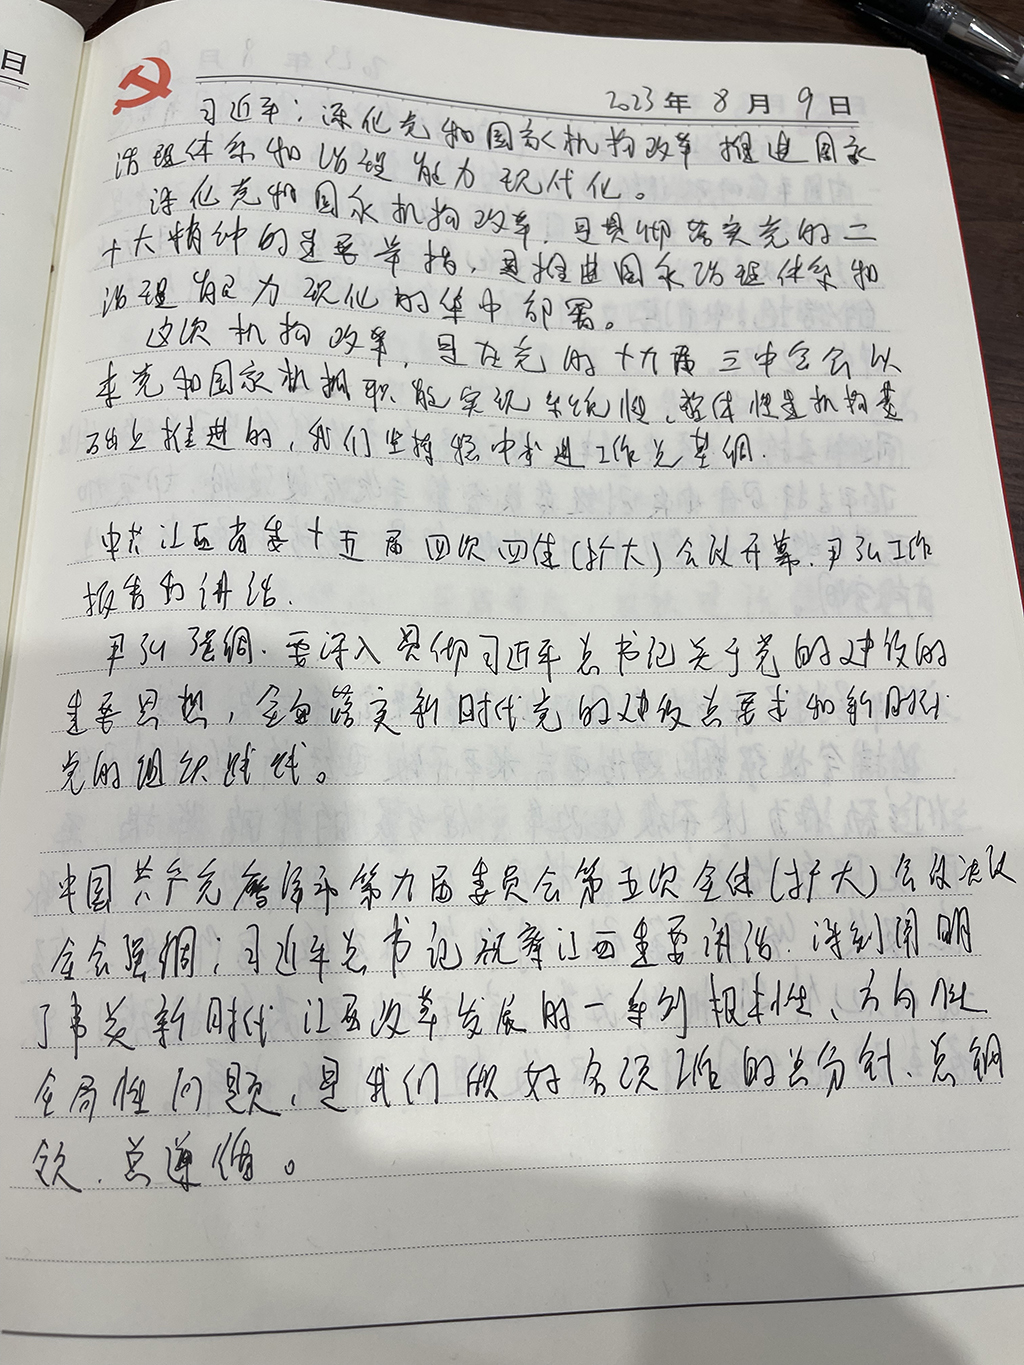 日
2023年8月9日
习近平：深化党和国家机构改革 推进国家
治理体系和治理能力现代化。
深化党和国家机构改革，是贯彻落实党的二
十大精神的重要举措，是推进国家治理体系和
治理能力现代化的集中部署。
这次机构改革，是在党的十九届三中全会以
来党和国家机构职能实现系统性、整体性重构基
础上推进的，我们坚持稳中求进工作总基调.
中共江西省委十五届四次四体(扩大)会议开幕.尹弘工作
报告的讲话.
尹弘强调.要深入贯彻习近平总书记关于党的建设的
重要思想，全面落实新时代党的建设总要求和新时代
党的组织路线。
中国共产党鹰潭市第九届委员会第五次全体(扩大)会议决议
全会强调；习近平总书记视察江西重要讲话.深刻阐明
了事关新时代江西改革发展的一系列根本性、方向性
全局性问题，是我们做好各项工作的总方针、总纲
领.总遵循。